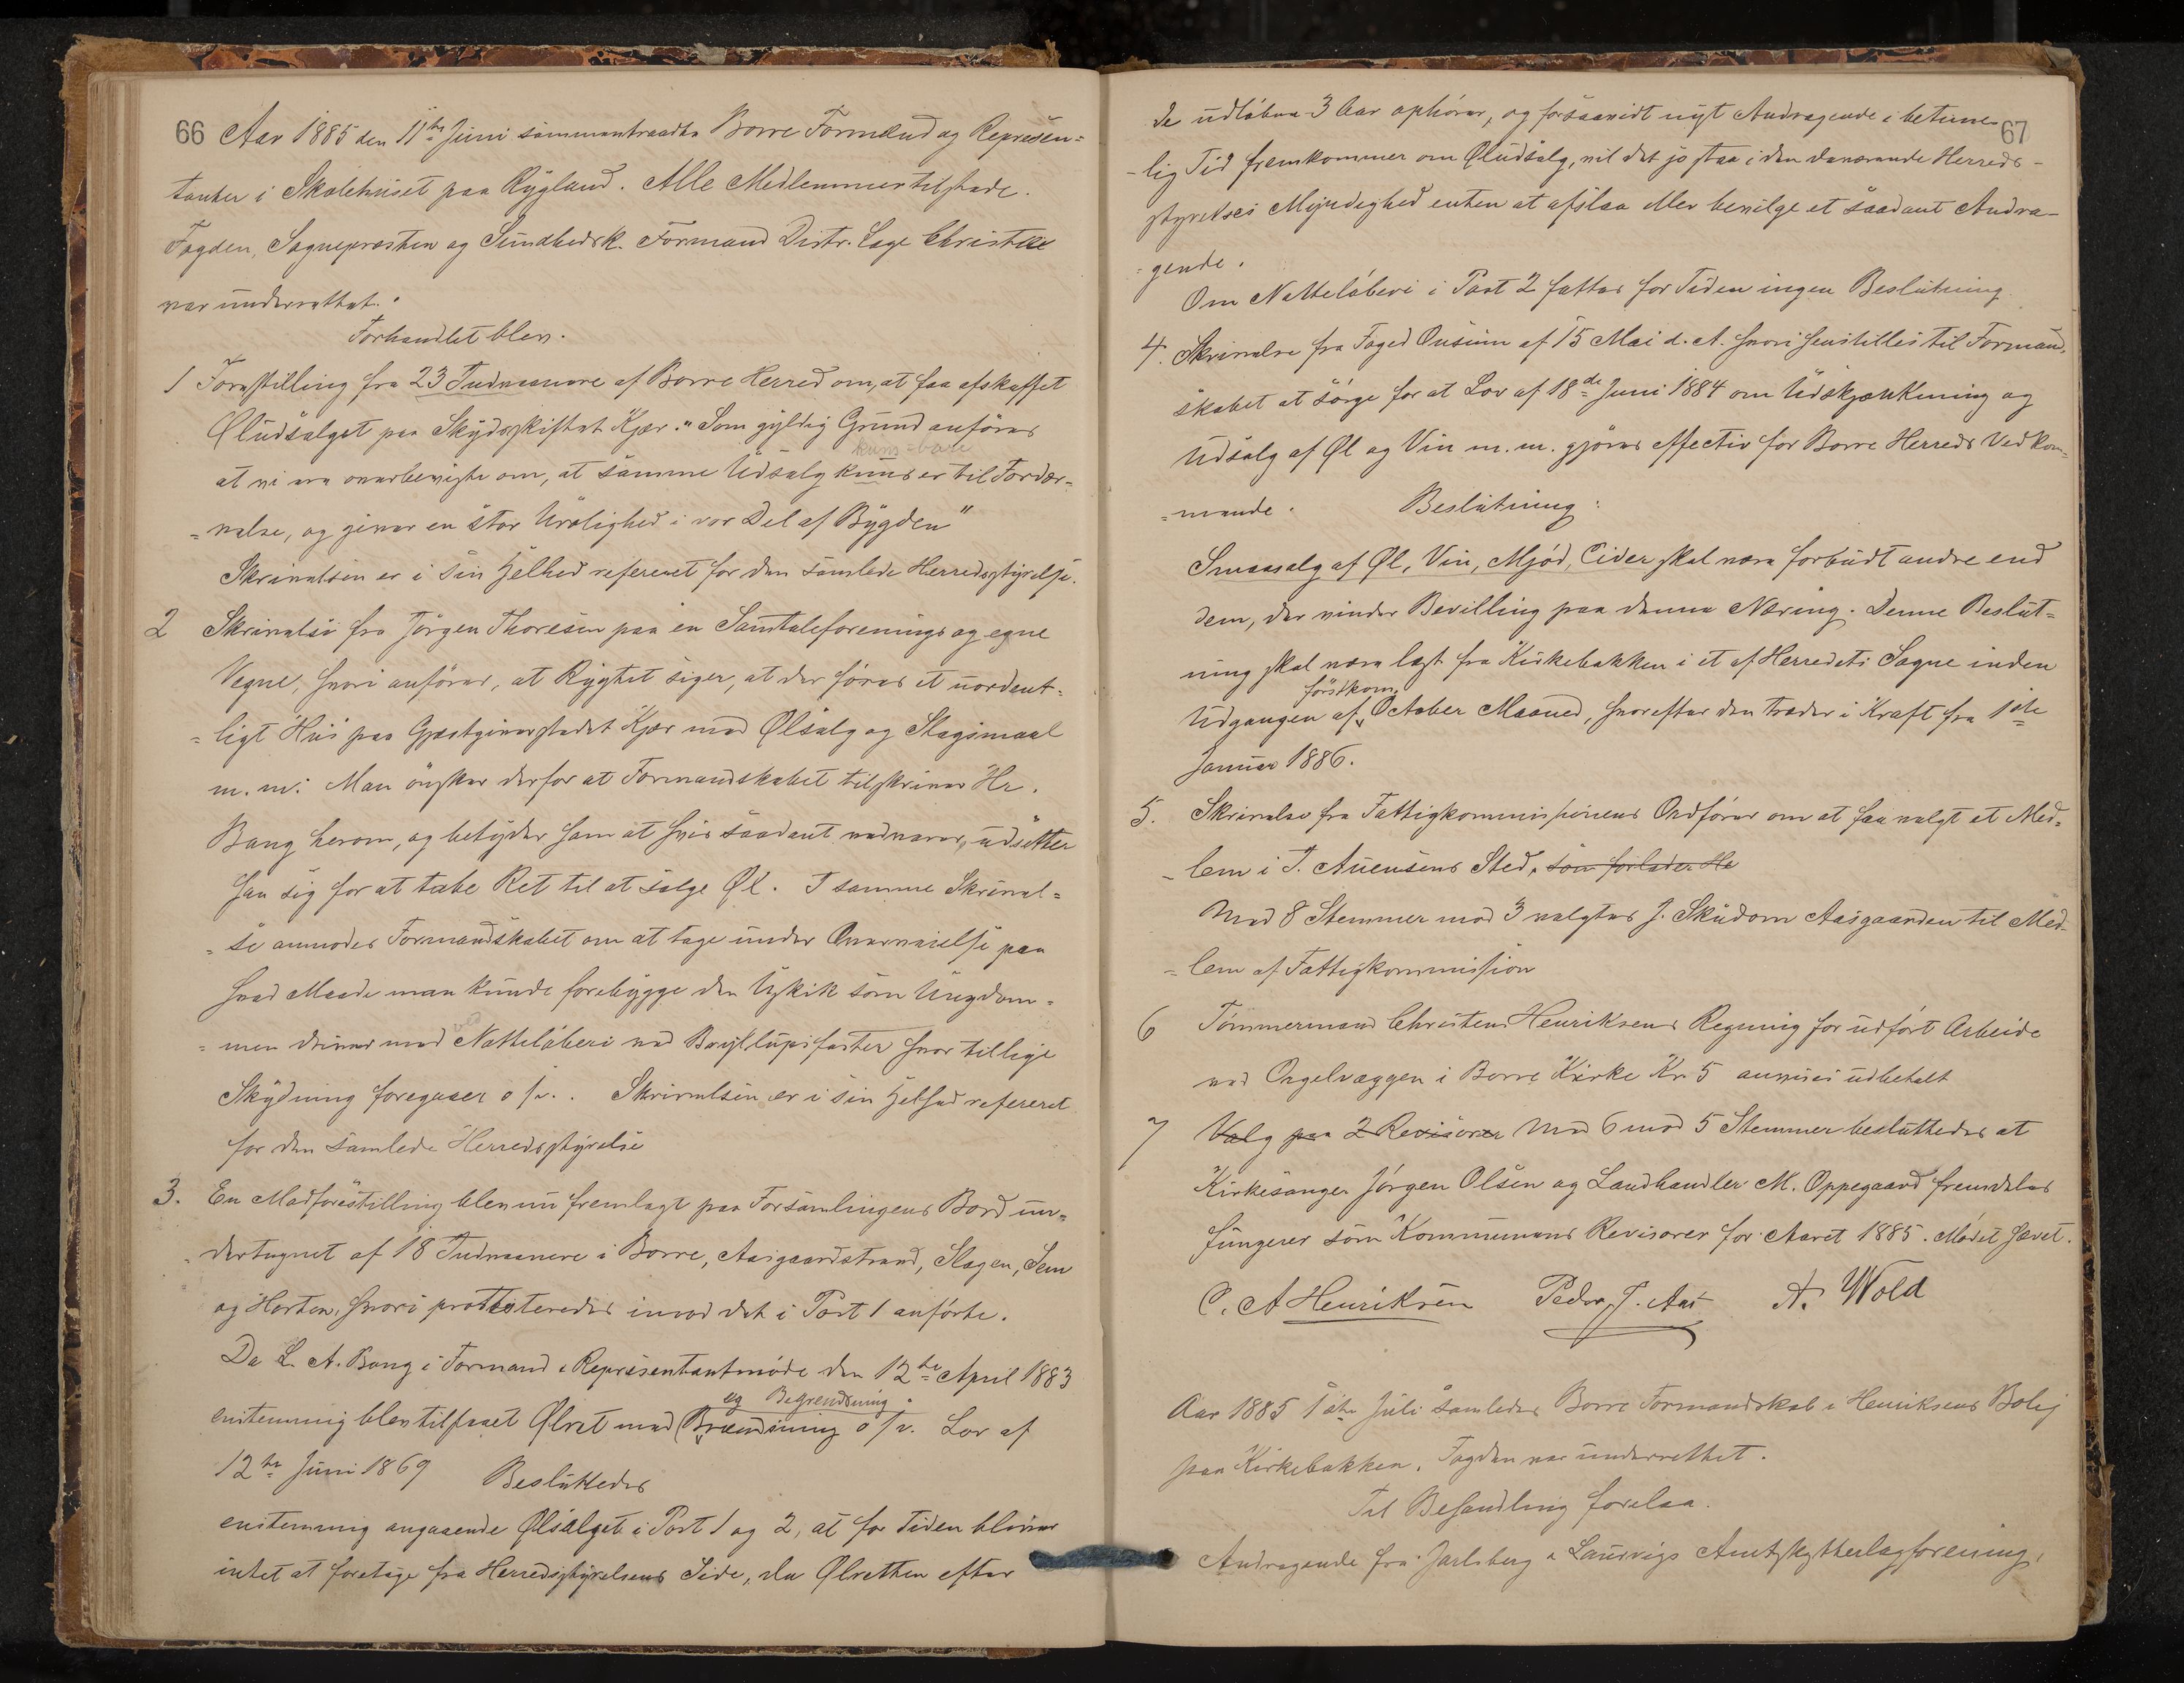 66 Aar 1885 den 11te Juni sammentraadte Borre Formænd og Represen=
tanter i Skolehuset paa Rygland. Alle Medlemmer tilstede.
Fogden, Sognepresten og Sundhedsk. Formand Distr. Læge Christie
var underrettet.
Forhandlet blev.
1 Forestilling fra 23 Indvaanere af Borre Herred om, at faa afskaffet
Øludsalget paa Skydsskiftet Kjær. "Som gyldig Grund anføres
kuns = bare
at vi ere overbeviste om, at samme Udsalg kuns er til Fordær=
=velse, og giver en stor Urolighed i vor Del af Bygden"
Skrivelsen er i sin Helhed refereret for den samlede Herredsstyrelse.
2 Skrivelse fra Jørgen Thoresen paa en Samtaleforenings og egne
Vegne, hvori anføres, at Rygtet siger, at der føres et uordent=
=ligt Hus paa Gjæstgiverstedet Kjær med Ølsalg og Slagsmaal
m. m. Man ønsker derfor at Formandskabet tilskriver Hr.
Bang herom, og betyder ham at hvis saadant vedvarer, udsætter
han sig for at tabe Ret til at sælge Øl. I samme Skrivel=
=se anmodes Formandskabet om at tage under Overveielse paa
hvad Maade man kunde forebygge den Uskik som Ungdom=
=men driver med Natteløberi ved Bryllupsfester hvor tillige
Skydning foregaaer o. s. v. Skrivelsen er i sin Helhed refereret
for den samlede Herredsstyrelse
3. En Modforestilling blev nu fremlagt paa Forsamlingens Bord un=
=dertegnet af 18 Indvaanere i Borre, Aasgaardstrand, Slagen, Sem
og Horten, hvori protesteredes imod det i Post 1 anførte.
Da L. A. Bang i Formand & Representantmøde den 12te April 1883
og Begrendsning
enstemmig blev tilstaaet Ølret med Brændsning o. s. v. Lov af
12te Juni 1869 Besluttedes
enstemmig angaaende Ølsalget i Post 1 og 2, at for Tiden bliver
intet at foretage fra Herredsstyrelsens Side, da Ølretten efter
67
de udløbne 3 Aar ophører, og forsaavidt nyt Andragende i betime-
-lig Tid fremkommer om Øludsalg, vil det jo staa i den daværende Herreds-
styrelses Myndighed enten at afslaa eller bevilge et saadant Andra-
=gende.
Om Natteløberi i Post 2 fattes for Tiden ingen Beslutning.
4. Skrivelse fra Foged Ousum af 15 Mai d. A. hvori henstilles til Formand,
skabet at sørge for at Lov af 18de Juni 1884 om Udskjænkning og
Udsalg af Øl og Vin m. m. gjøres effectiv for Borre Herreds Vedkom=
=mende. Beslutning:
Smaasalg af Øl, Vin, Mjød, Cider skal være forbudt andre end
dem, der vinder Bevilling paa denne Næring. Denne Beslut=
ning skal være læst fra Kirkebakken i et af Herredets Sogne inden
førstkom.
Udgangen af October Maaned, hvorefter den træder i Kraft fra 1ste
Januar 1886.
5. Skrivelse fra Fattigkommissionens Ordfører om at faa valgt et Med=
-lem i T. Auensens Sted, som forlader He
Med 8 Stemmer mod 3 valgtes J. Skudom Aasgaarden til Med-
=lem af Fattigkommission
6 Tømmermand Christen Henriksens Regning for udført Arbeide
ved Orgelvæggen i Borre Kirke Kr. 5 anvises udbetalt
7 Valg paa 2 Revisorer Med 6 mod 5 Stemmer besluttedes at
Kirkesanger Jørgen Olsen og Landhandler M. Oppegaard fremdeles
fungerer som Kommunens Revisorer for Aaret 1885. Mødet hævet.
C. A Henriksen Peder J. Aas A. Wold
Aar 1885 1ste Juli samledes Borre Formandskab i Henriksens Bolig
paa Kirkebakken. Fogden var underrettet.
Til Behandling forelaa.
Andragende fra Jarlsberg & Laurvigs Amtsskytterlagforening,